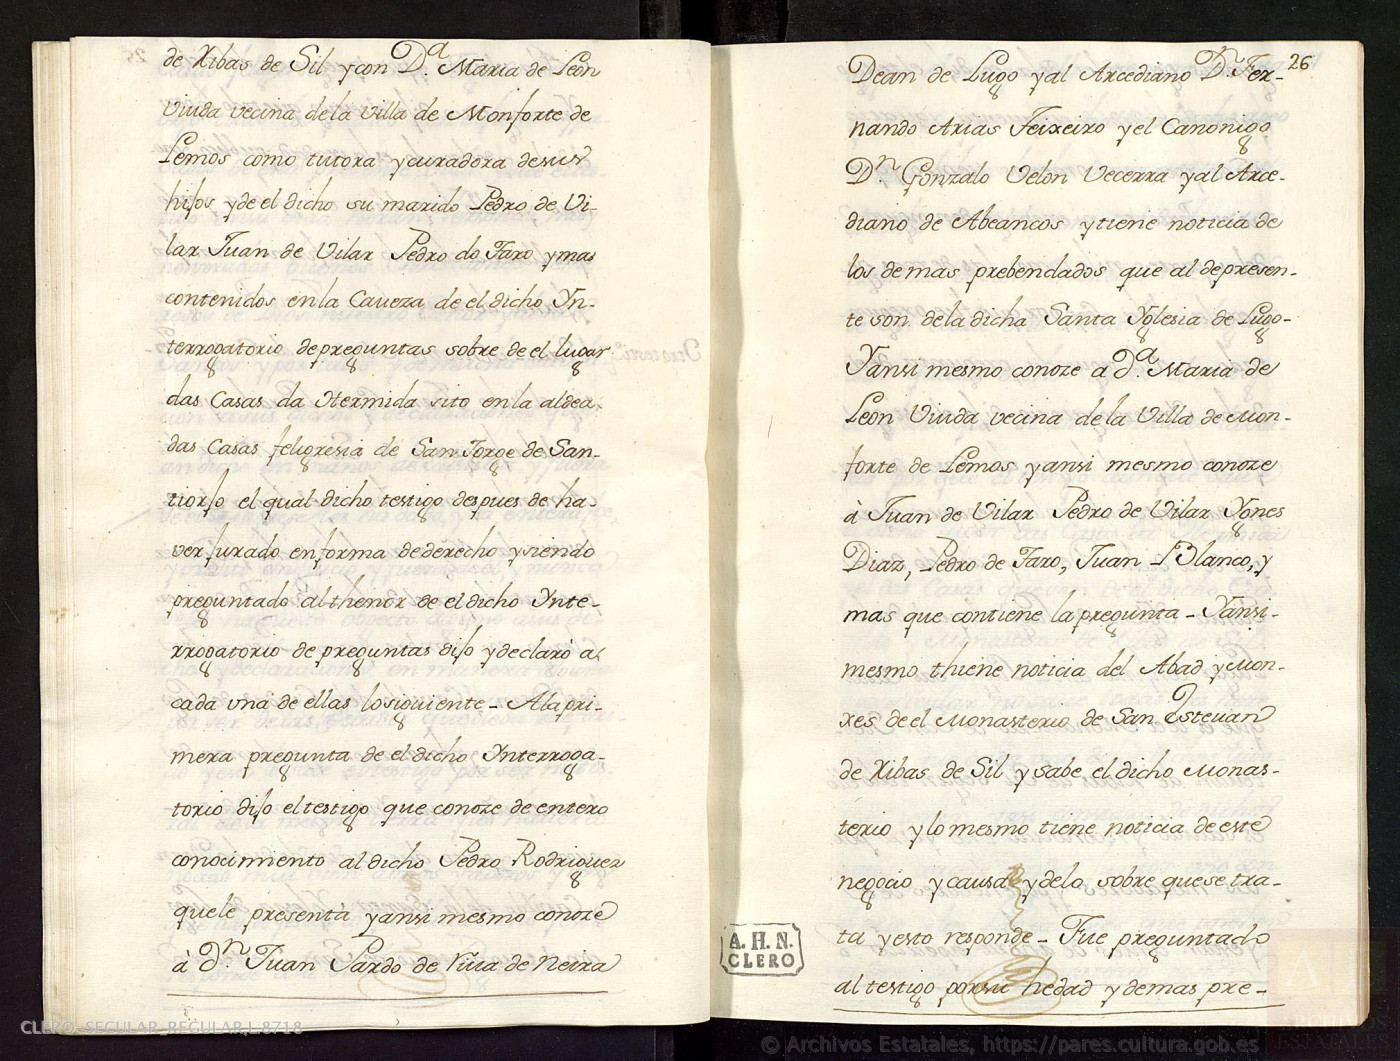 de Ribas de Sil y con D.ª Maria de Leon
viuda vecina de la villa de Monforte de
Lemos como tutora y curadora de sus
hijos y de el dicho su marido Pedro de Vi-
lar Juan de Vilar Pedro do Faro y mas
contenidos en la Caveza de el dicho Yn-
terrogatorio de preguntas sobre de el lugar
das Casas da Hermida sito en la aldea
das Casas feligresia de San Jorge de San-
tiorjo el qual dicho testigo despues de ha-
ver jurado en forma de derecho y siendo
preguntado al thenor de el dicho Ynte-
rrogatorio de preguntas dijo y declarò a
cada una de ellas lo siguiente - A la pri-
mera pregunta de el dicho Ynterroga-
torio dijo el testigo que conoze de entero
conocimiento al dicho Pedro Rodriguez
que le presenta y ansi mesmo conoze
à d.n Juan Pardo de Viva de Neira
26
Dean de Lugo y al Arcediano D.n Fer-
nando Arias Teixeiro y el Canonigo
D.n Gonzalo Velon Vecerra y al Arce-
diano de Abeancos y tiene noticia de
los demas prebendados que al depresen-
te son de la dicha Santa Yglesia de Lugo-
Y ansi mesmo conoze a d.ª Maria de
Leon Viuda vecina de la Villa de Mon-
forte de Lemos y ansi mesmo conoze
à Juan de Vilar Pedro de Vilar Ygnes
Diaz, Pedro de Faro, Juan Blanco, y
mas que contiene la pregunta - Y ansi-
mesmo thiene noticia del Abad y Mon-
xes de el Monasterio de San Estevan
de Ribas de Sil y sabe el dicho Monas-
terio y lo mesmo tiene noticia de este
negocio y causa y de lo sobre que se tra-
ta y esto responde - Fue preguntado
al testigo por su hedad y demas pre-
A. H. N.
CLERO
CLERO_SECULAR_REGULAR,L.8718
© Archivos Estatales, https://pares.cultura.gob.es
ARCHIVOS
ESTATALES